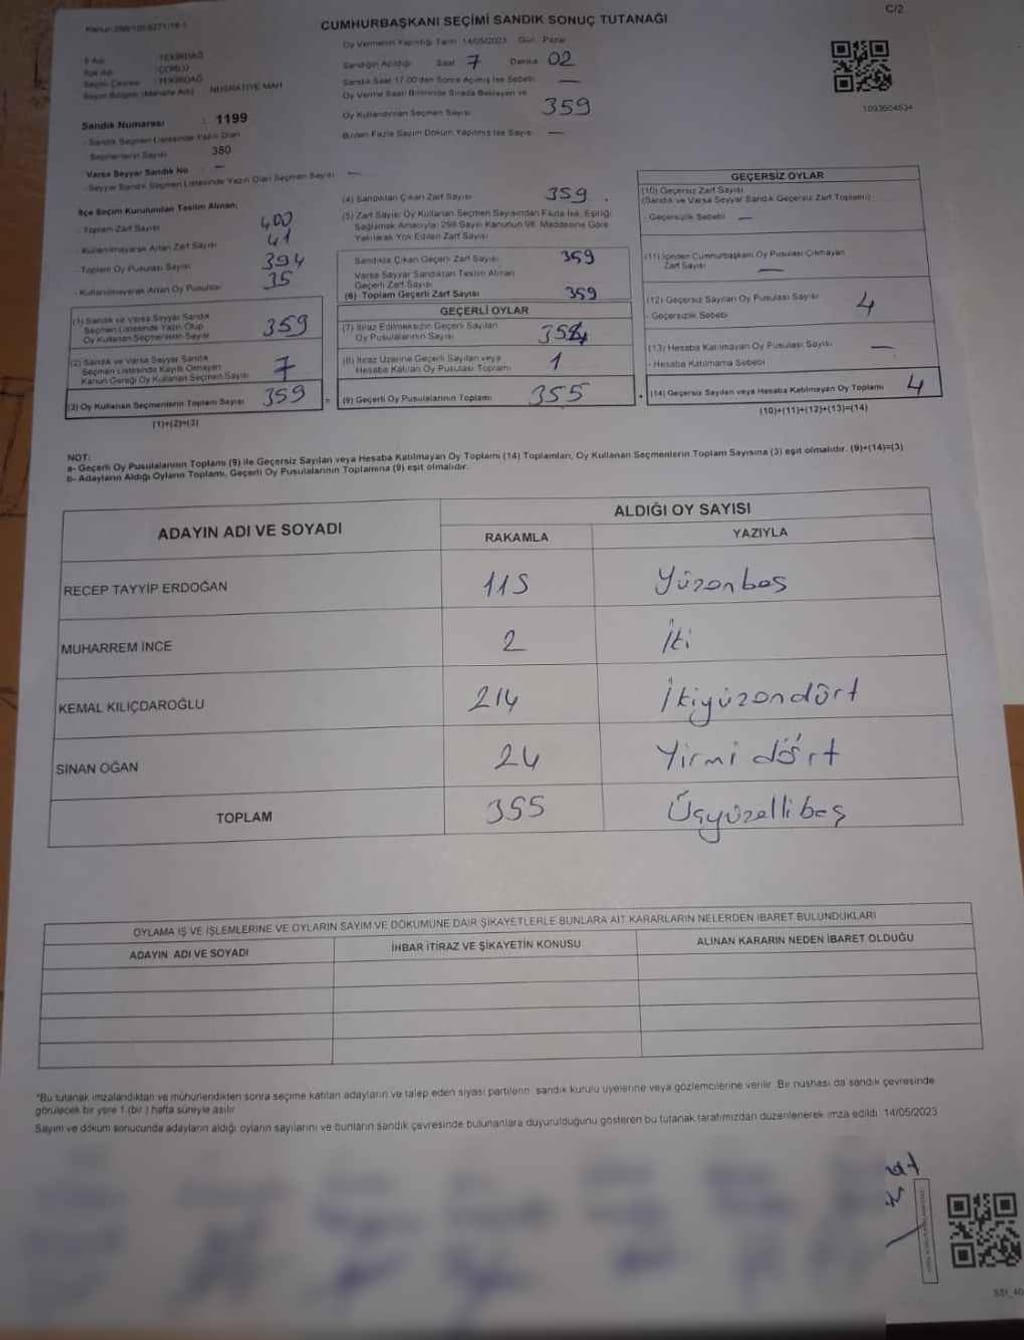 C/2
CUMHURBAŞKANI SEÇİMİ SANDIK SONUÇ TUTANAĞI
Oy Vermenin Yapıldığı Tarih 14/05/2023 Gün: Pazar
İl Adı : TEKİRDAĞ
İlçe Adı : ÇORLU
Seçim Çevresi : TEKİRDAĞ
Seçim Bölgesi (Mahalle Adı) : NUSRATİYE MAH
Sandığın Açıldığı Saat 7 Dakika 02
Sandık Saat 17.00'den Sonra Açılmış İse Sebebi —
Oy Verme Saati Bitiminde Sırada Bekleyen ve
Oy Kullandırılan Seçmen Sayısı 359
Birden Fazla Sayım Döküm Yapılmış İse Sayısı —
Sandık Numarası : 1199
Sandık Seçmen Listesinde Yazılı Olan
Seçmenlerin Sayısı 380
Varsa Seyyar Sandık No —
Seyyar Sandık Seçmen Listesinde Yazılı Olan Seçmen Sayısı —
İlçe Seçim Kurulundan Teslim Alınan;
- Toplam Zarf Sayısı 400
- Kullanılmayarak Artan Zarf Sayısı 41
- Toplam Oy Pusulası Sayısı 394
- Kullanılmayarak Artan Oy Pusulası 35
(1) Sandık ve Varsa Seyyar Sandık
Seçmen Listesinde Yazılı Olup
Oy Kullanan Seçmenlerin Sayısı 359
(2) Sandık ve Varsa Seyyar Sandık
Seçmen Listesinde Kayıtlı Olmayan
Kanun Gereği Oy Kullanan Seçmen Sayısı 7
(3) Oy Kullanan Seçmenlerin Toplam Sayısı 359
(1)+(2)=(3)
(4) Sandıktan Çıkan Zarf Sayısı 359
(5) Zarf Sayısı Oy Kullanan Seçmen Sayısından Fazla İse, Eşitliği
Sağlamak Amacıyla 298 Sayılı Kanunun 98. Maddesine Göre
Yakılarak Yok Edilen Zarf Sayısı
Sandıkta Çıkan Geçerli Zarf Sayısı 359
Varsa Seyyar Sandıktan Teslim Alınan
Geçerli Zarf Sayısı
(6) Toplam Geçerli Zarf Sayısı 359
GEÇERLİ OYLAR
(7) İtiraz Edilmeksizin Geçerli Sayılan
Oy Pusulalarının Sayısı 354
(8) İtiraz Üzerine Geçerli Sayılan veya
Hesaba Katılan Oy Pusulası Toplamı 1
(9) Geçerli Oy Pusulalarının Toplamı 355
GEÇERSİZ OYLAR
(10) Geçersiz Zarf Sayısı
(Sandık ve Varsa Seyyar Sandık Geçersiz Zarf Toplamı)
- Geçersizlik Sebebi —
(11) İçinden Cumhurbaşkanı Oy Pusulası Çıkmayan
Zarf Sayısı —
(12) Geçersiz Sayılan Oy Pusulası Sayısı 4
- Geçersizlik Sebebi
(13) Hesaba Katılmayan Oy Pusulası Sayısı —
- Hesaba Katılmama Sebebi
(14) Geçersiz Sayılan veya Hesaba Katılmayan Oy Toplamı 4
(10)+(11)+(12)+(13)=(14)
NOT:
a- Geçerli Oy Pusulalarının Toplamı (9) ile Geçersiz Sayılan veya Hesaba Katılmayan Oy Toplamı (14) Toplamları, Oy Kullanan Seçmenlerin Toplam Sayısına (3) eşit olmalıdır. (9)+(14)=(3)
b- Adayların Aldığı Oyların Toplamı, Geçerli Oy Pusulalarının Toplamına (9) eşit olmalıdır.
ADAYIN ADI VE SOYADI
ALDIĞI OY SAYISI
RAKAMLA YAZIYLA
RECEP TAYYİP ERDOĞAN 115 Yüzonbeş
MUHARREM İNCE 2 İki
KEMAL KILIÇDAROĞLU 214 İkiyüzondört
SİNAN OĞAN 24 Yirmi dört
TOPLAM 355 Üçyüzelli beş
OYLAMA İŞ VE İŞLEMLERİNE VE OYLARIN SAYIM VE DÖKÜMÜNE DAİR ŞİKAYETLERLE BUNLARA AİT KARARLARIN NELERDEN İBARET BULUNDUKLARI
ADAYIN ADI VE SOYADI İHBAR İTİRAZ VE ŞİKAYETİN KONUSU ALINAN KARARIN NEDEN İBARET OLDUĞU
*Bu tutanak imzalandıktan ve mühürlendikten sonra seçime katılan adayların ve talep eden siyasi partilerin sandık kurulu üyelerine veya gözlemcilerine verilir. Bir nüshası da sandık çevresinde
görülecek bir yere 1 (bir) hafta süreyle asılır.
Sayım ve döküm sonucunda adayların aldığı oyların sayılarını ve bunların sandık çevresinde bulunanlara duyurulduğunu gösteren bu tutanak tarafımızdan düzenlenerek imza edildi. 14/05/2023